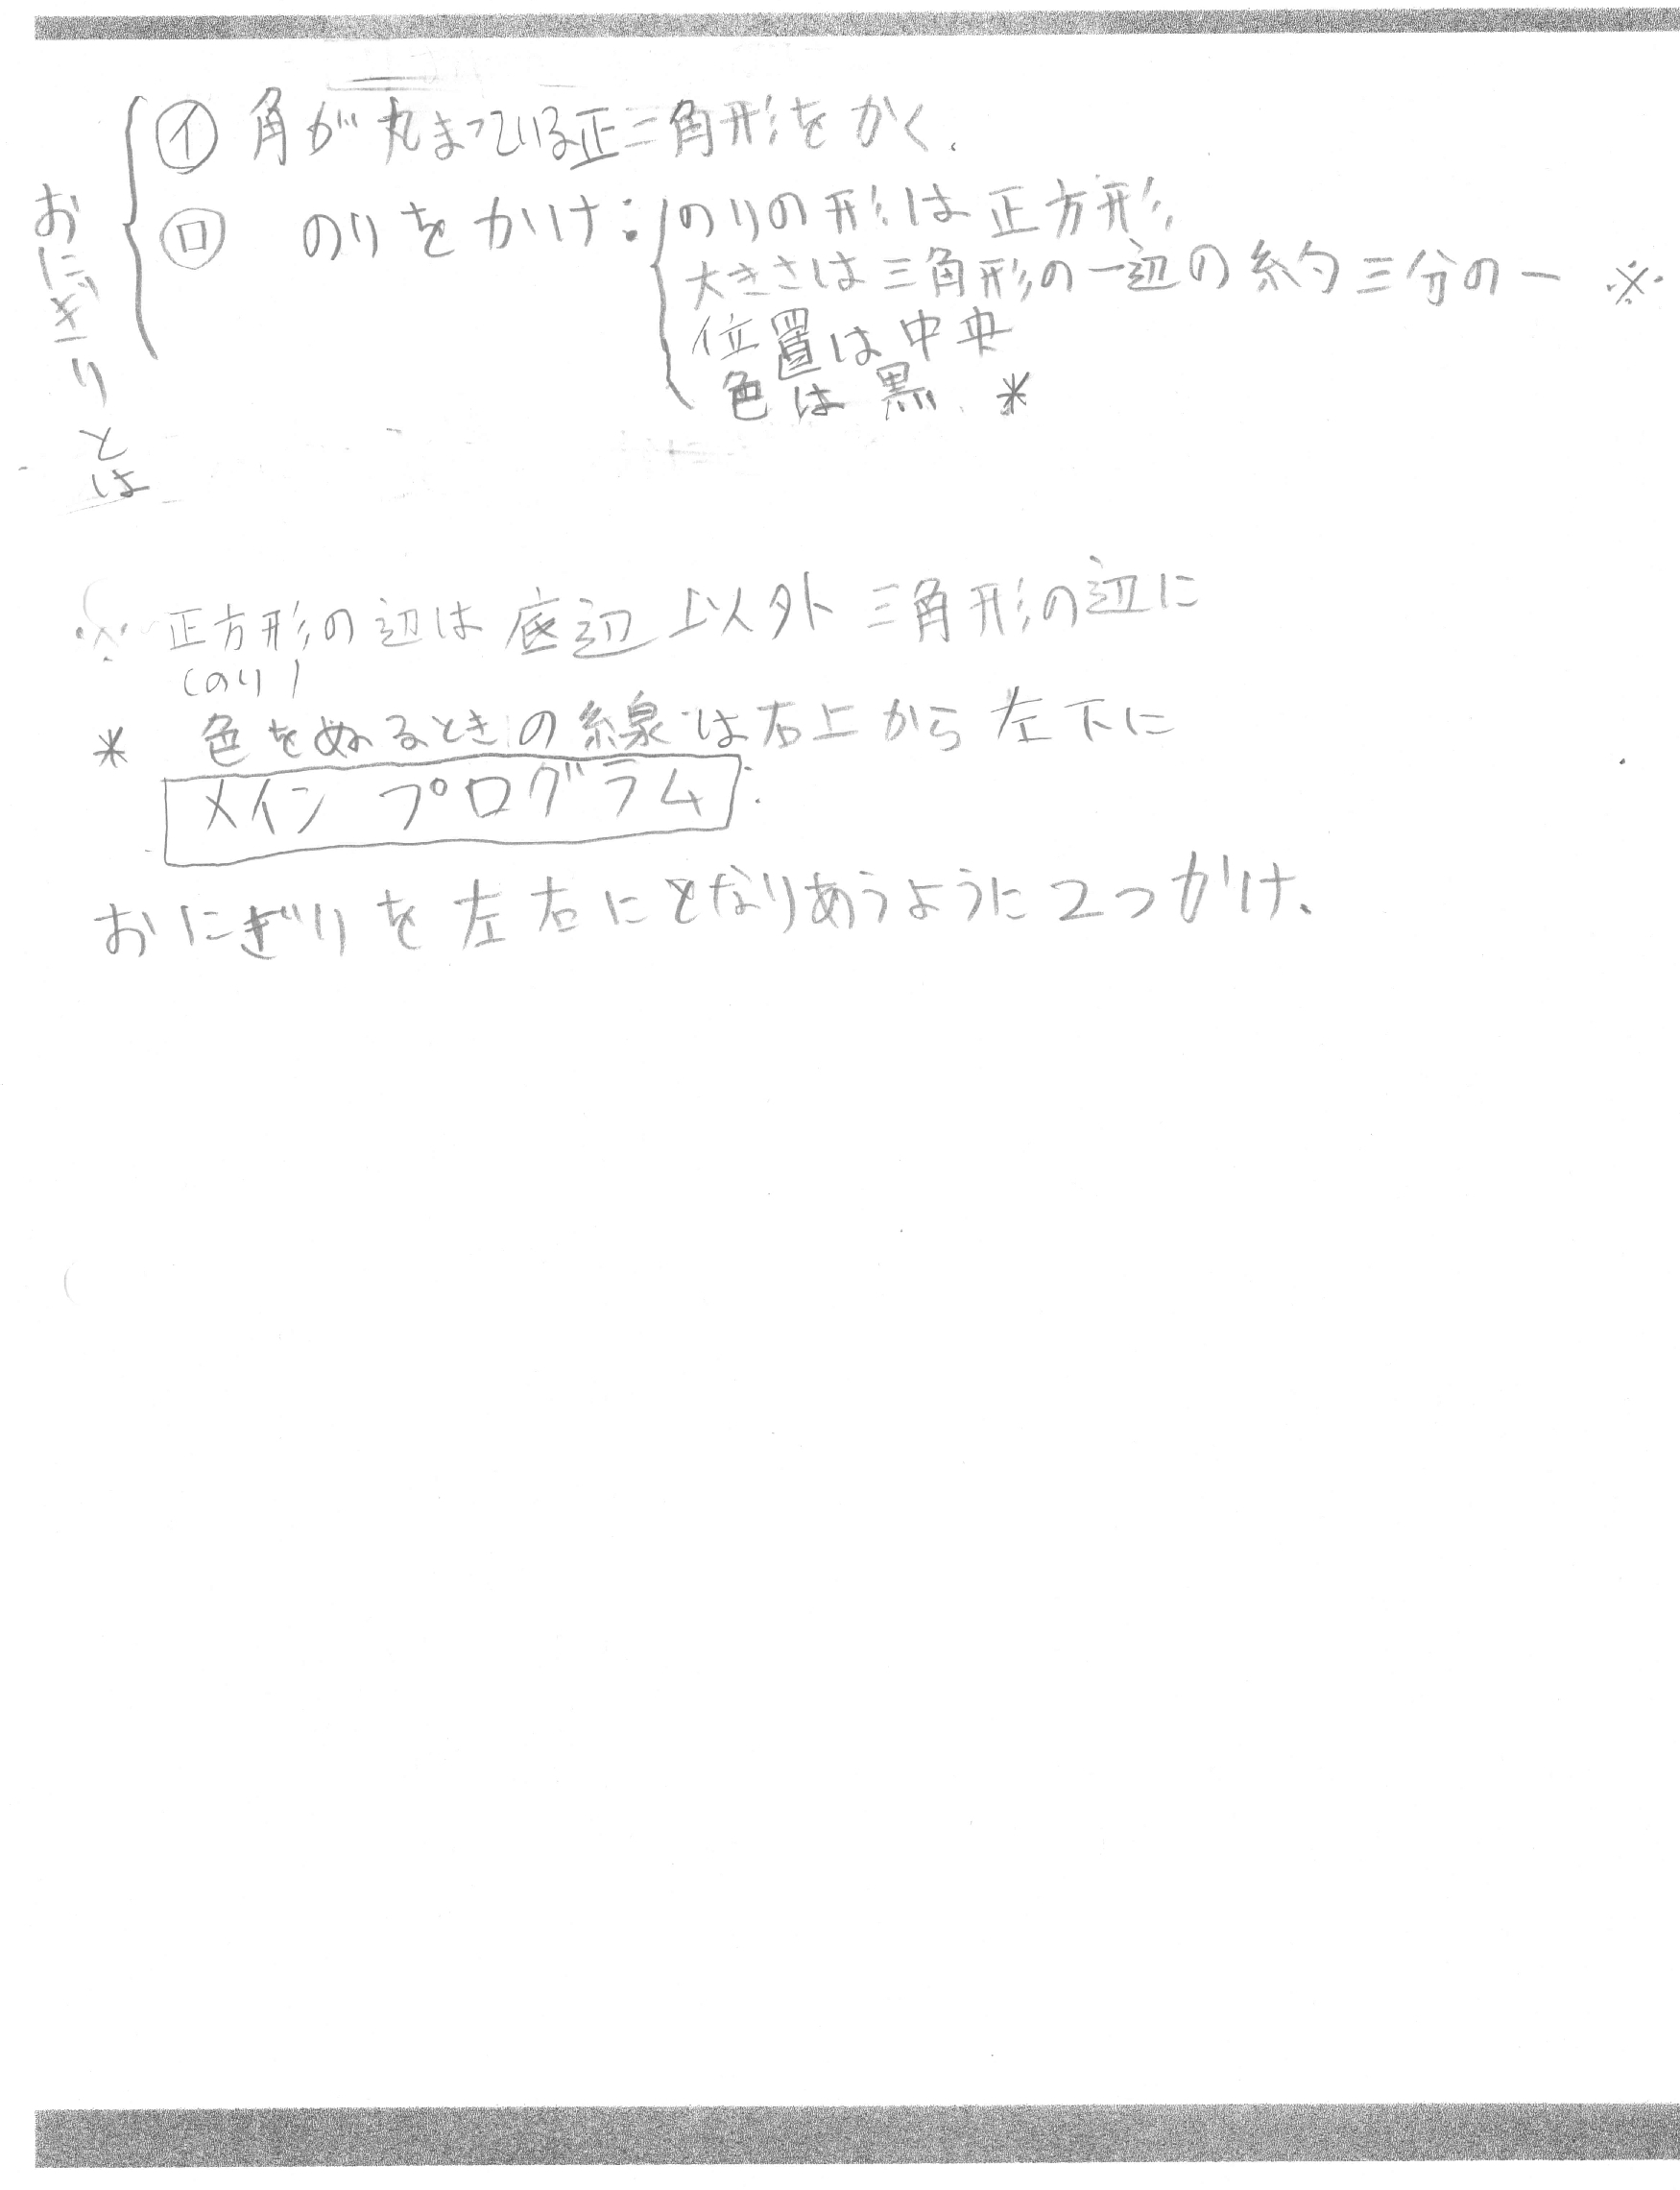 おにぎりとは
㋑ 角が丸まっている正三角形をかく.
ロ のりをかけ:
のりの形は正方形
大きさは三角形の一辺の約三分の一 ※
位置は中央
色は黒. *
※ 正方形の辺は底辺以外三角形の辺に
(のり)
* 色をぬるときの線は右上から左下に
メインプログラム:
おにぎりを左右にとなりあうように2つかけ、